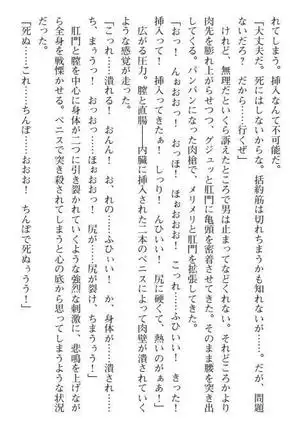 れてしまう。挿入なんて不可能だ。
「大丈夫だ。死にはしないからな。括約筋は切れちまうかも知れないが……。だが、問題
ないだろ？　だから……行くぜ」
けれど、無理だといくら訴えたところで男は止まってなどくれない。それどころかより
肉先を膨れ上がらせつつ、グジュッと肛門に亀頭を密着させてきた。そのまま腰を突き出
してくる。パンパンになった肉槍で、メリメリと肛門を拡張してきた。
「おっ！　んぉおおっ！　おっほ！　ほぉおおお！　こっれ……ふひいい！　きった！
挿入って！　挿入ってきたぁ！　しっり！　んひいい！　尻に硬くて、熱いのがぁあ！」
広がる圧力。膣と直腸――内臓に挿入された二本のペニスによって肉壁が潰されていく
ような感覚が走った。
「こっれ……潰れる！　おんん！　お、れの……ふひぃい！　か、身体が……潰され……
ち、まうぅ！　おっおっ……ほぉおおっ！　尻が……尻が裂け、ちまうぅ！　おおお！」
肛門と膣を中心に身体が二つに引き裂かれていくような強烈な刺激に、悲鳴を上げなが
ら全身を戦慄かせる。ペニスで突き殺されてしまうと心の底から思ってしまうような状況
だった。
「死ぬ……これ……ちんぽ……おおお！　ちんぽで死ぬぅうう！」